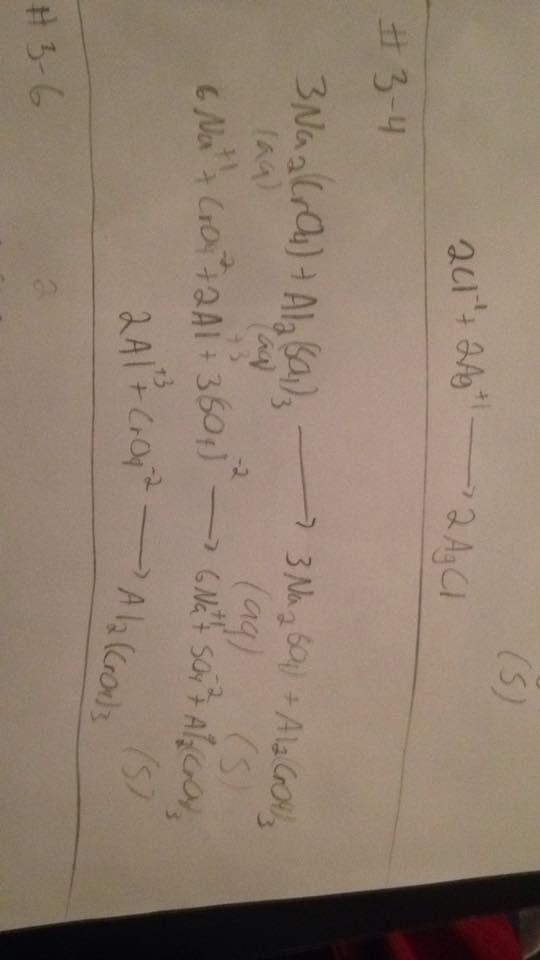 (s)
2Cl⁻¹ + 2Ag⁺¹ → 2AgCl
# 3-4
3Na₂(CrO₄) + Al₂(SO₄)₃ → 3Na₂SO₄) + Al₂(CrO₄)₃
(aq) (aq) (aq) (s)
6Na⁺¹ + CrO₄⁻² + 2Al⁺³ + 3(SO₄)⁻² → 6Na⁺¹ + SO₄⁻² + Al₂(CrO₄)₃
2Al⁺³ + CrO₄⁻² → Al₂(CrO₄)₃ (s)
# 3-6
2